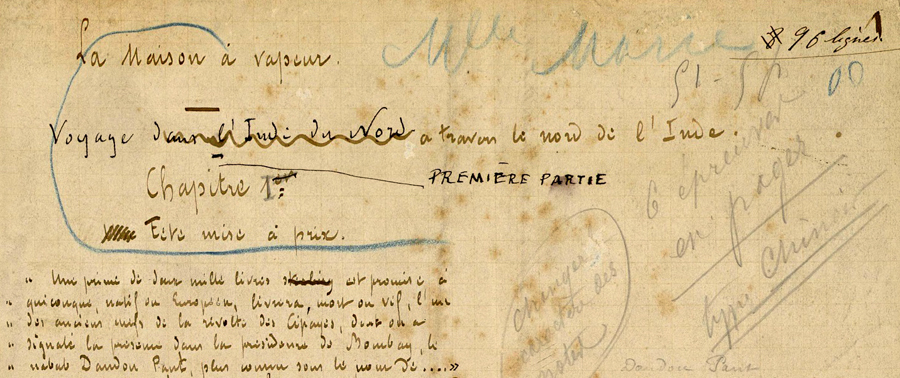 La Maison à vapeur.
Mlle Marie
8 96 lignes
Voyage dans l'Inde du Nord à travers le nord de l'Inde.
PREMIÈRE PARTIE
Chapitre 1er
Tête mise à prix.
" Une prime de deux mille livres est promise à
" quiconque, natif ou Européen, livrera, mort ou vif, l'un
" des anciens chefs de la révolte des Cipayes, dont on a
" signalé la présence dans la présidence de Bombay, le
" nabab Dandou Pant, plus connu sous le nom de...."
6 épreuves
en pages
changer
caractère des
notes
Dandou Pant